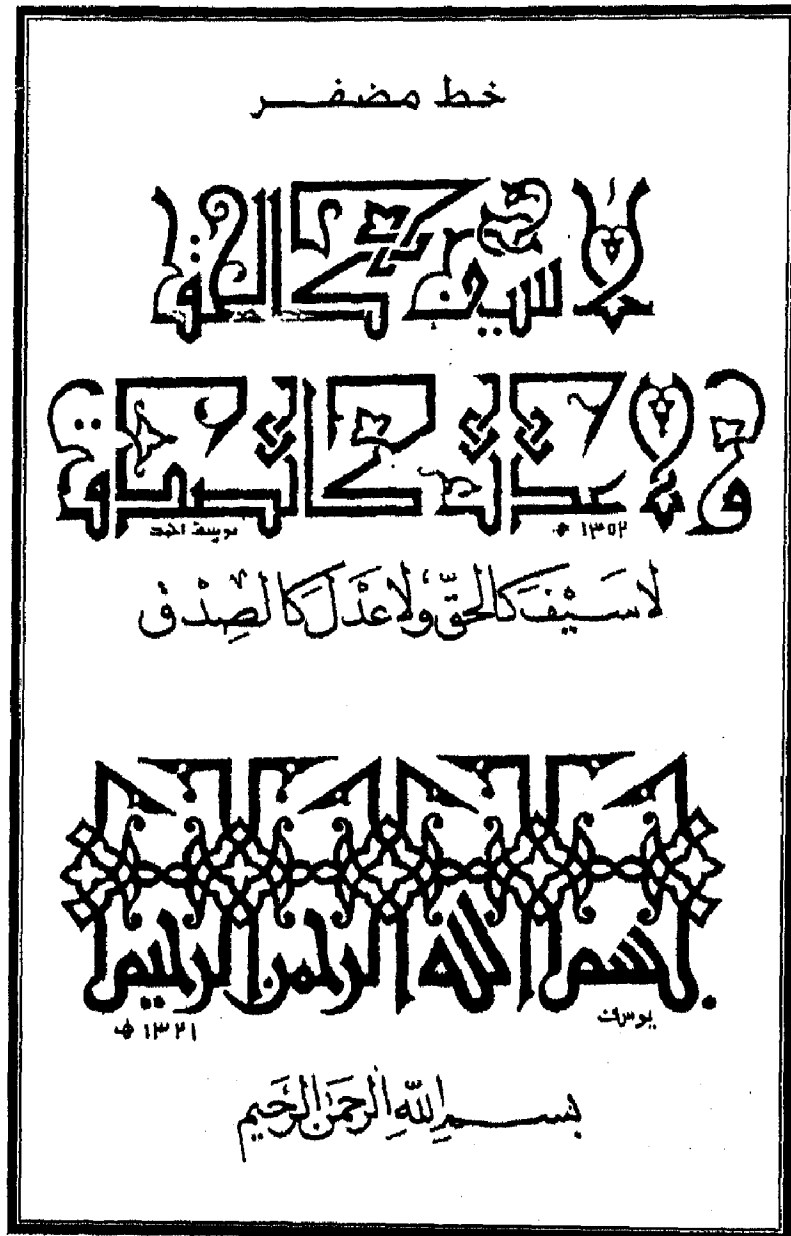 خط مضفر
لا سيف كالحق
ولا عدل كالصدق
يوسف احمد ١٣٥٢ هـ
لَا سَيْفَ كَالحَقِّ وَلَا عَدْلَ كَالصِدْقِ
بسم الله الرحمن الرحيم
يوسف ١٣٢١ هـ
بسمِ اللهِ الرحمَنِ الرحَيم